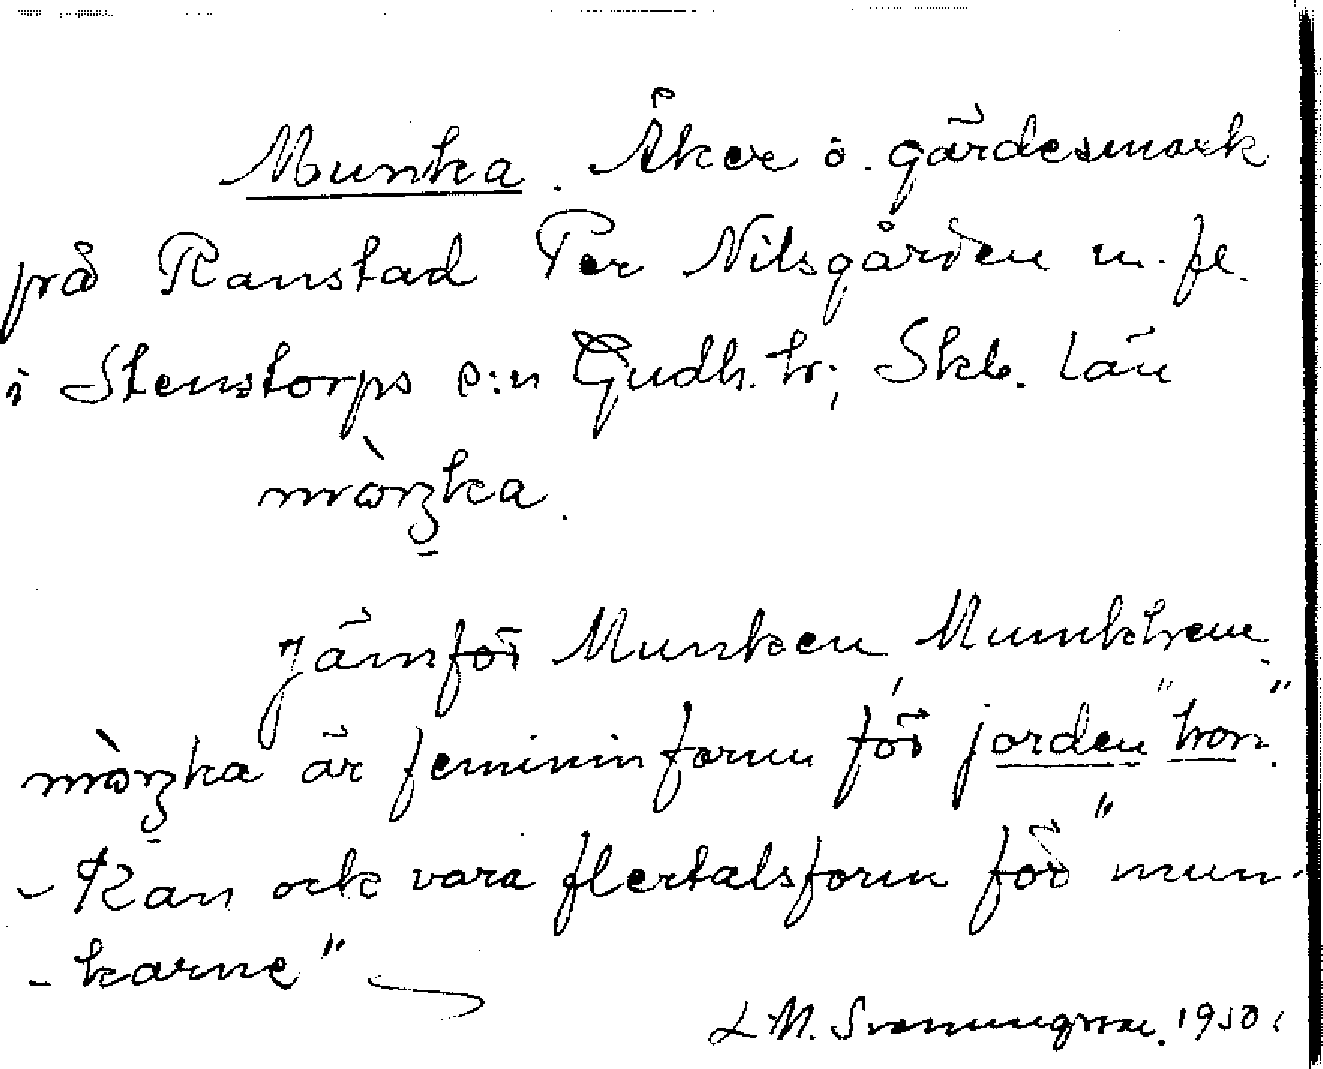 Munka. Åker o. gärdesmark
på Ranstad Per Nilsgården m. fl.
i Stenstorps s:n Gudh. hr; Skb. län
mòn̥ka.
Jämför Munken, Munkhem.
mòn̥ka är femininform för jorden "hon".
- Kan ock vara flertalsform för "mun-
- karne"
L M. Svenungsson. 1930.